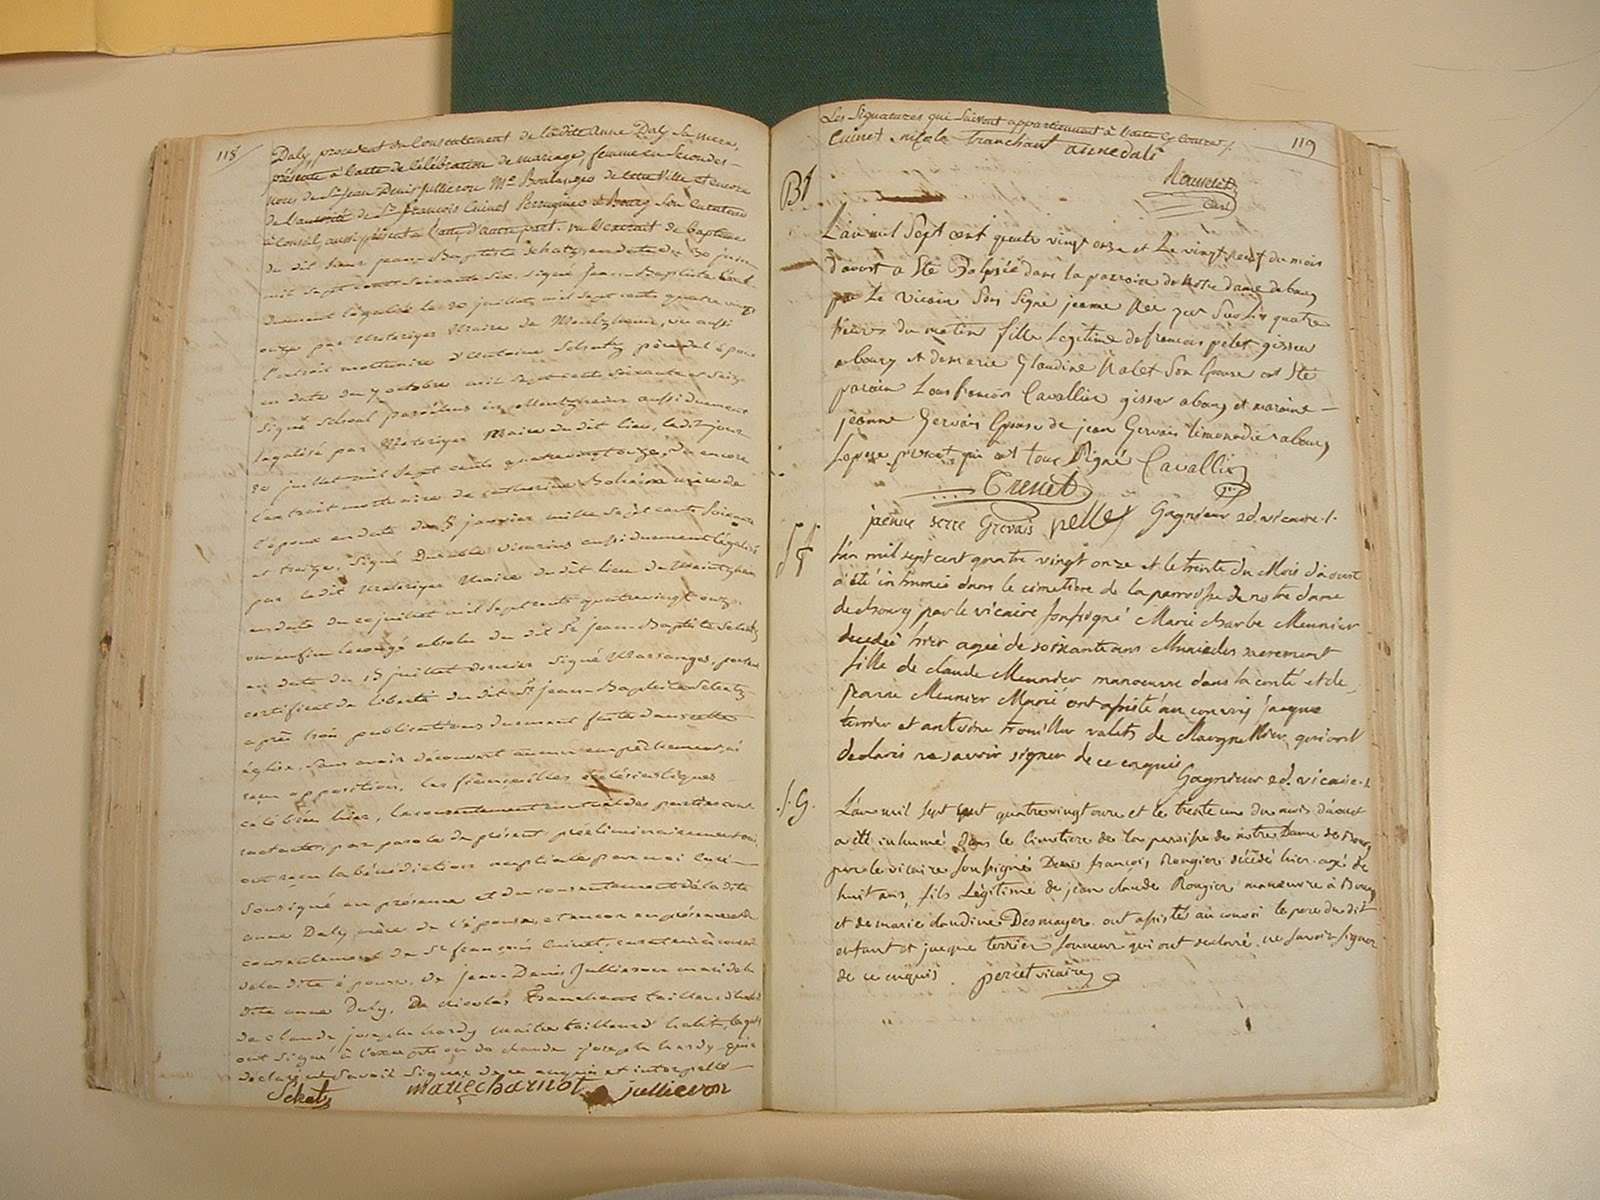 118
Daly, procedant du Consentement de la dite Anne Daly sa mere,
présente à l'acte de célébration de mariage, femme en secondes
noces de Sr Jean Denis Jullieron Me Boulanger de cette Ville et encore
de l'autorité de Sr François Cuinet Perruquier à Bourg son Curateur
à Conseil, aussi présent à l'acte, d'autre part. vu l'extrait de baptême
du dit sieur jean-Baptiste Schatz en date du 30 juin
mil sept cents soixante six, signé jean-Baptiste
duement légalisé le 20 juillet mil sept cents quatre vingt
onze par Metzger Maire de, vu aussi
l'extrait mortuaire d'Antoine Schatz père de l'époux
en date du 7 octobre mil sept cents soixante et seize
signé aussi duement
légalisé par Metzger Maire du dit lieu, le dit jour
20 juillet mil sept cents quatrevingt onze, vu encore
l'extrait mortuaire de Catherine mère de
l'époux en date du 8 janvier mille sept cents soixante
et treize, signé vicarius aussi duement légalisé
par le dit Metzger Maire du dit lieu de
en date du 20 juillet mil sept cents quatrevingt onze,
vu enfin le congé absolu du dit Sr jean-Baptiste Schatz
en date du 15 juillet dernier signé, portant
certificat de liberté du dit Sr jean-Baptiste Schatz
après trois publications duement faites dans cette
église, sans avoir découvert aucun empêchement ni
reçu opposition, les fiançailles ecclésiastiques
célébrées hier, le consentement mutuel des parties
contractantes par parole de présent préliminairement
ont reçu la bénédiction nuptiale par moi Curé
soussigné en présence et du consentement de la dite
anne Daly mère de l'épouse, et encore en présence et du
consentement de Sr françois Cuinet, curateur à conseil
de la dite épouse, de jean-Denis Jullieron mari de la
dite anne Daly, De nicolas Tranchant tailleur d'habit
de claude joseph hardy maître tailleur d'habit, lesquels
ont signé à l'exception de claude joseph hardy qui a
déclaré ne savoir signer de ce enquis et interpellé
Schatz mariecharnot jullieron
119
Les Signatures qui suivent appartiennent à l'acte cy contre
Cuinet nicola Tranchant anne dali
curé
Bt
L'an mil Sept cent quatre vingt onze et Le vingt neuf du mois
d'aout a Eté Batysé dans la parroise de notre dame de bourg
par Le vicaire Sous Signé jeanne Née jeur Sus Les quatre
heures du matin fille Légitime de francois pelet gisseur
a bourg et de marie Glaudine Nalet Son Epouse ont Eté
parain Louis francois Cavallier gisseur a bourg et maraine
jeanne Gervais Epouse de jean Gervais limonadier a bourg
Le pere present qui ont tous Signé Cavallier
Trenet
jeanne serre Grevais pellet Gagnieur ad. vicaire.
Sep
l'an mil sept cent quatre vingt onze et le trente du Mois d'aoust
à été inhumée dans le cimetiere de la parroisse de notre dame
de bourg par le vicaire soussigné Marie Barbe Meunier
decedée hier agée de soixante ans Munie des sacrements
fille de claude Meunier manoeuvre dans la conté et de
jeanne Meunier Marié ont assisté au convoy jacque
terrier et antoine trouiller valets de Marguillier qui ont
declarés ne savoir signer de ce enquis
Gagnieur ad. vicaire.
S. G.
L'an mil sept cent quatrevingt onze et le trente une du mois d'aoust
a été inhumé dans le cimetiere de la paroisse de notre Dame de Bourg
par le vicaire soussigné Denis françois Rougier décédé hier agé de
huit ans, fils Légitime de jean claude Rougier manœuvre à Bourg
et de marie claudine Desmayer ont assisté au convoi le pere du dit
enfant et jacque terrier sonneur qui ont declaré ne savoir signer
de ce enquis. percet vicaire